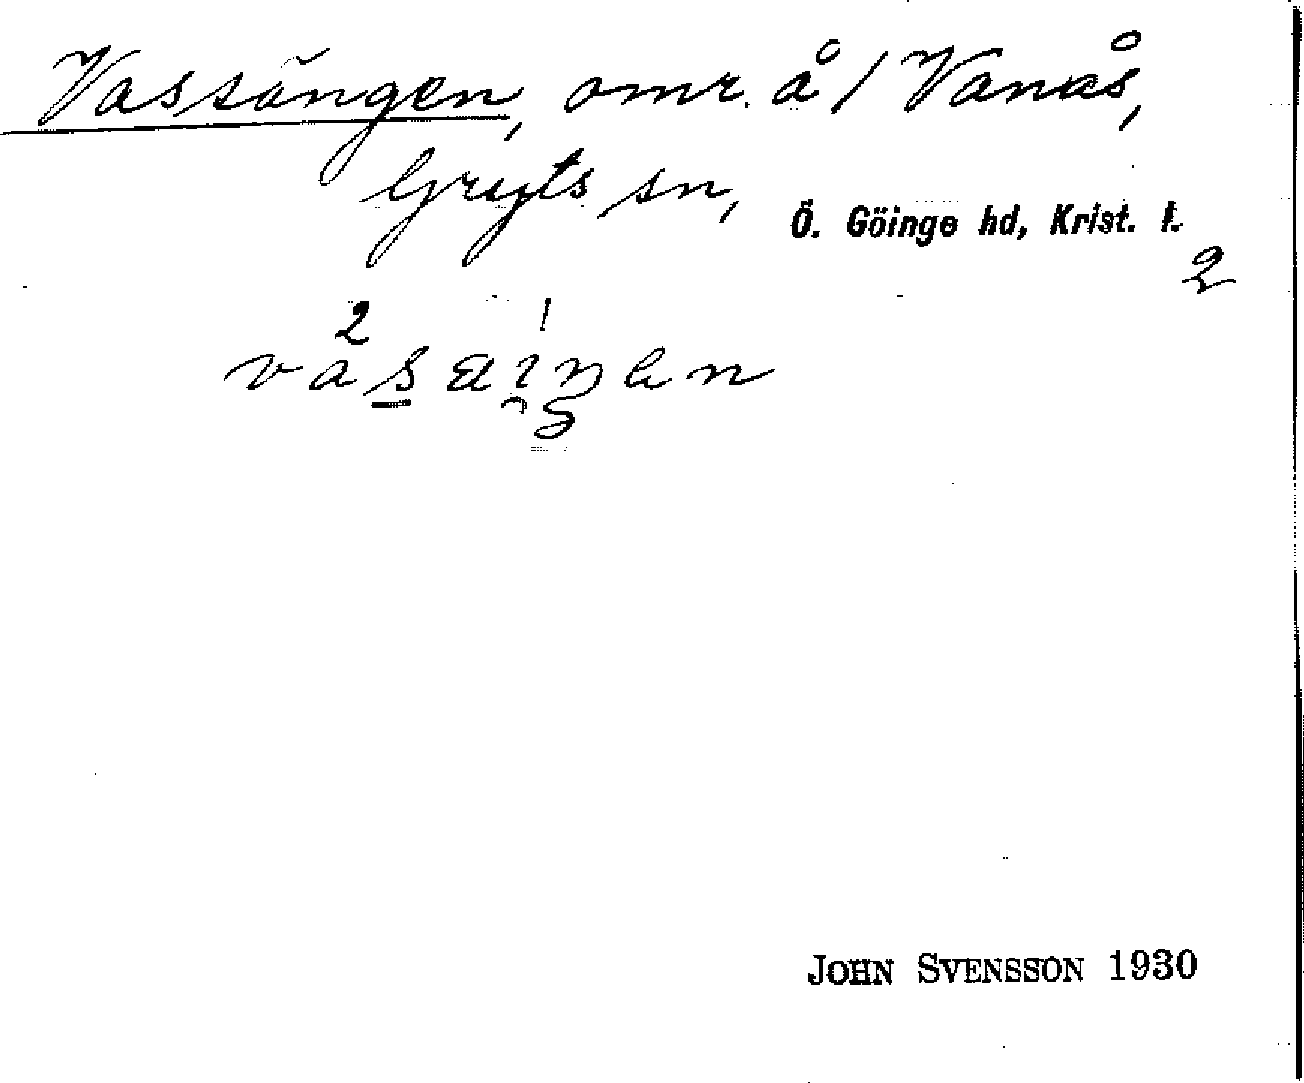 Vassängen, omr. å/ Vanås,
Gryts sn,
Ö. Göinge hd, Krist. l.
2
JOHN SVENSSON 1930